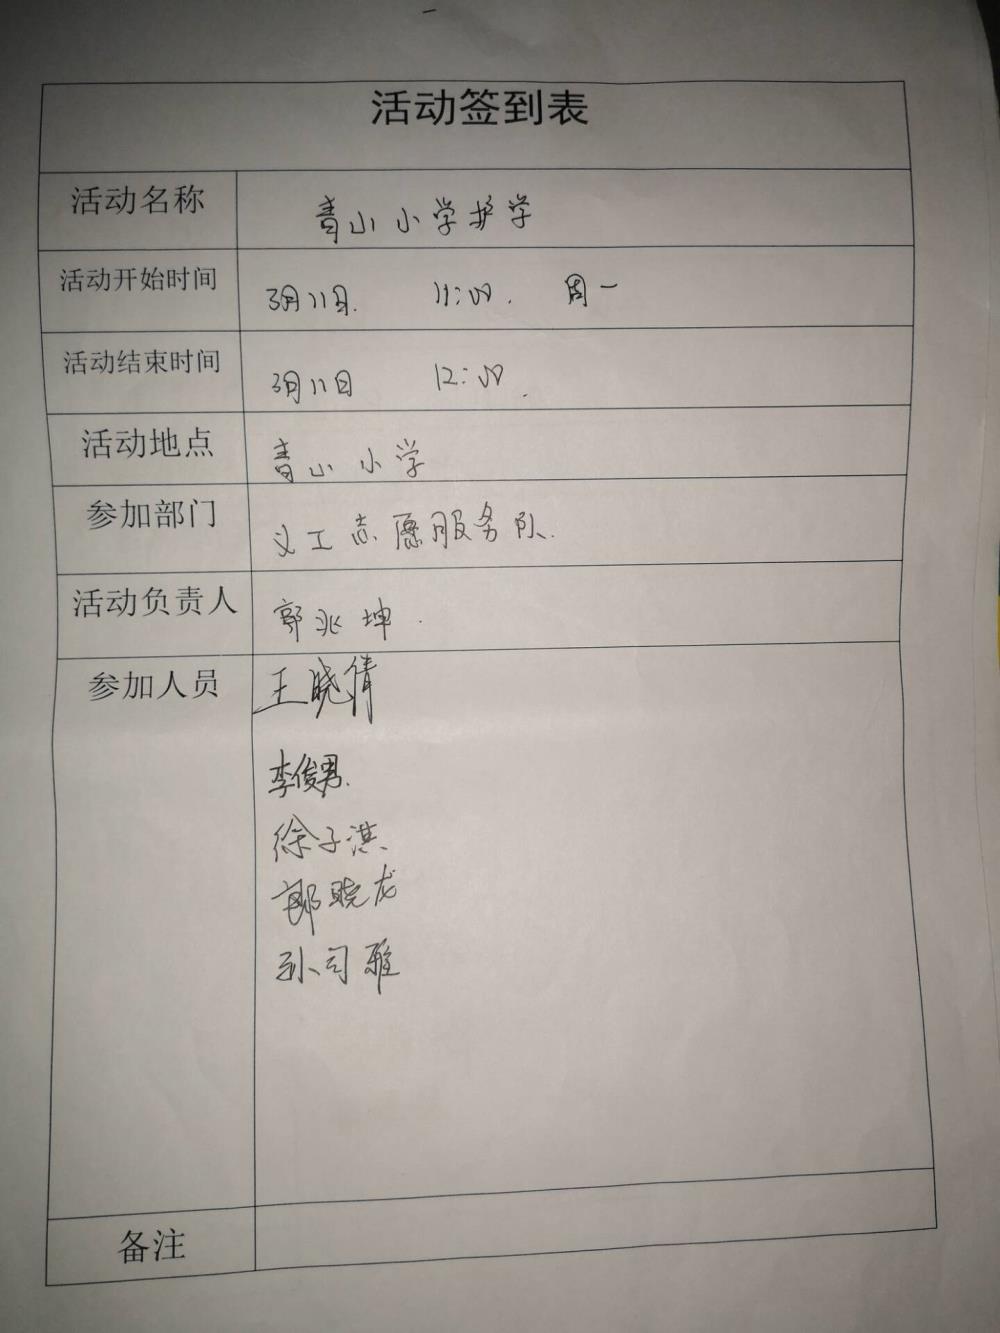 活动签到表
活动名称 青山小学护学
活动开始时间 3月11日. 11:00. 周一
活动结束时间 3月11日 12:00.
活动地点 青山小学
参加部门 义工志愿服务队.
活动负责人 郭兆坤.
参加人员 王晓倩
李俊男.
徐子淇
郭晓龙
孙司雅
备注